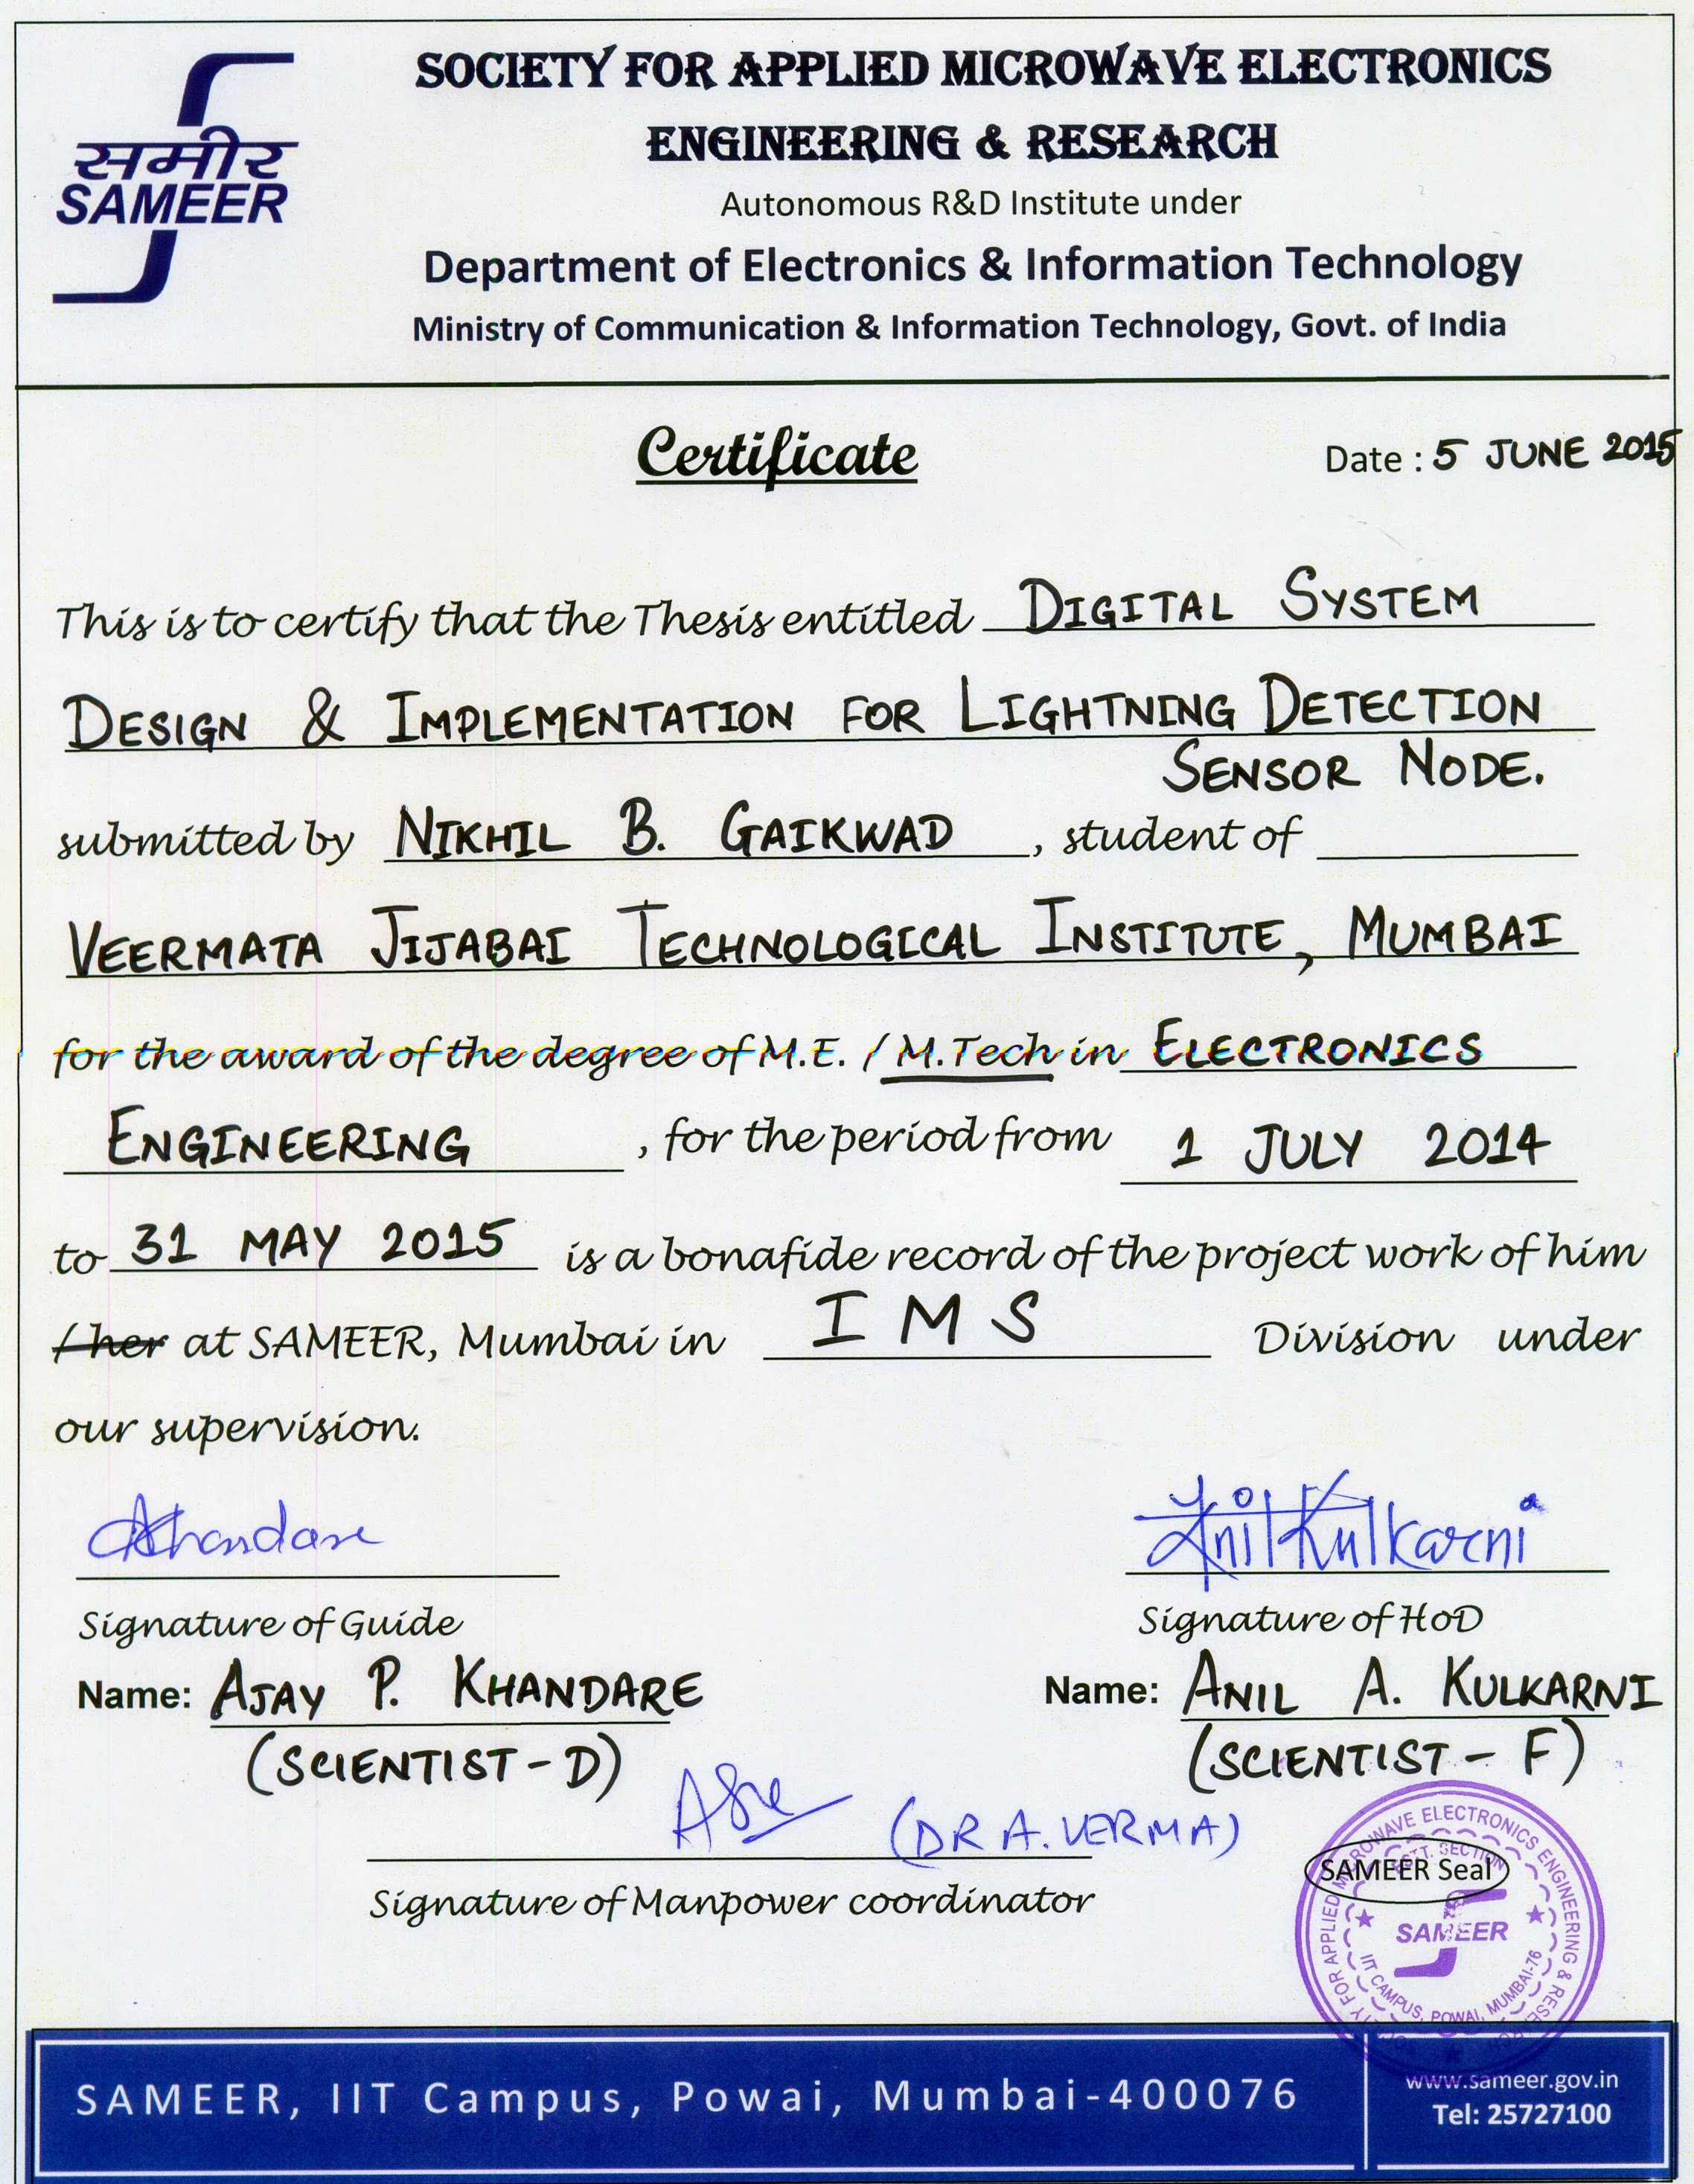 समीर
SAMEER
SOCIETY FOR APPLIED MICROWAVE ELECTRONICS
ENGINEERING & RESEARCH
Autonomous R&D Institute under
Department of Electronics & Information Technology
Ministry of Communication & Information Technology, Govt. of India
Certificate
Date : 5 JUNE 2015
This is to certify that the Thesis entitled DIGITAL SYSTEM
DESIGN & IMPLEMENTATION FOR LIGHTNING DETECTION
SENSOR NODE.
submitted by NIKHIL B. GAIKWAD , student of
VEERMATA JIJABAI TECHNOLOGICAL INSTITUTE, MUMBAI
for the award of the degree of M.E. / M.Tech in ELECTRONICS
ENGINEERING , for the period from 1 JULY 2014
to 31 MAY 2015 is a bonafide record of the project work of him
/ her at SAMEER, Mumbai in I M S Division under
our supervision.
AKhandare
Anil Kulkarni
Signature of Guide
Signature of HoD
Name: AJAY P. KHANDARE
(SCIENTIST - D)
Name: ANIL A. KULKARNI
(SCIENTIST - F)
(DR A. VERMA)
Signature of Manpower coordinator
SAMEER Seal
SOCIETY FOR APPLIED MICROWAVE ELECTRONICS ENGINEERING & RESEARCH
ESTT. SECTION
SAMEER
IIT CAMPUS, POWAI, MUMBAI-76
SAMEER, IIT Campus, Powai, Mumbai-400076
www.sameer.gov.in
Tel: 25727100